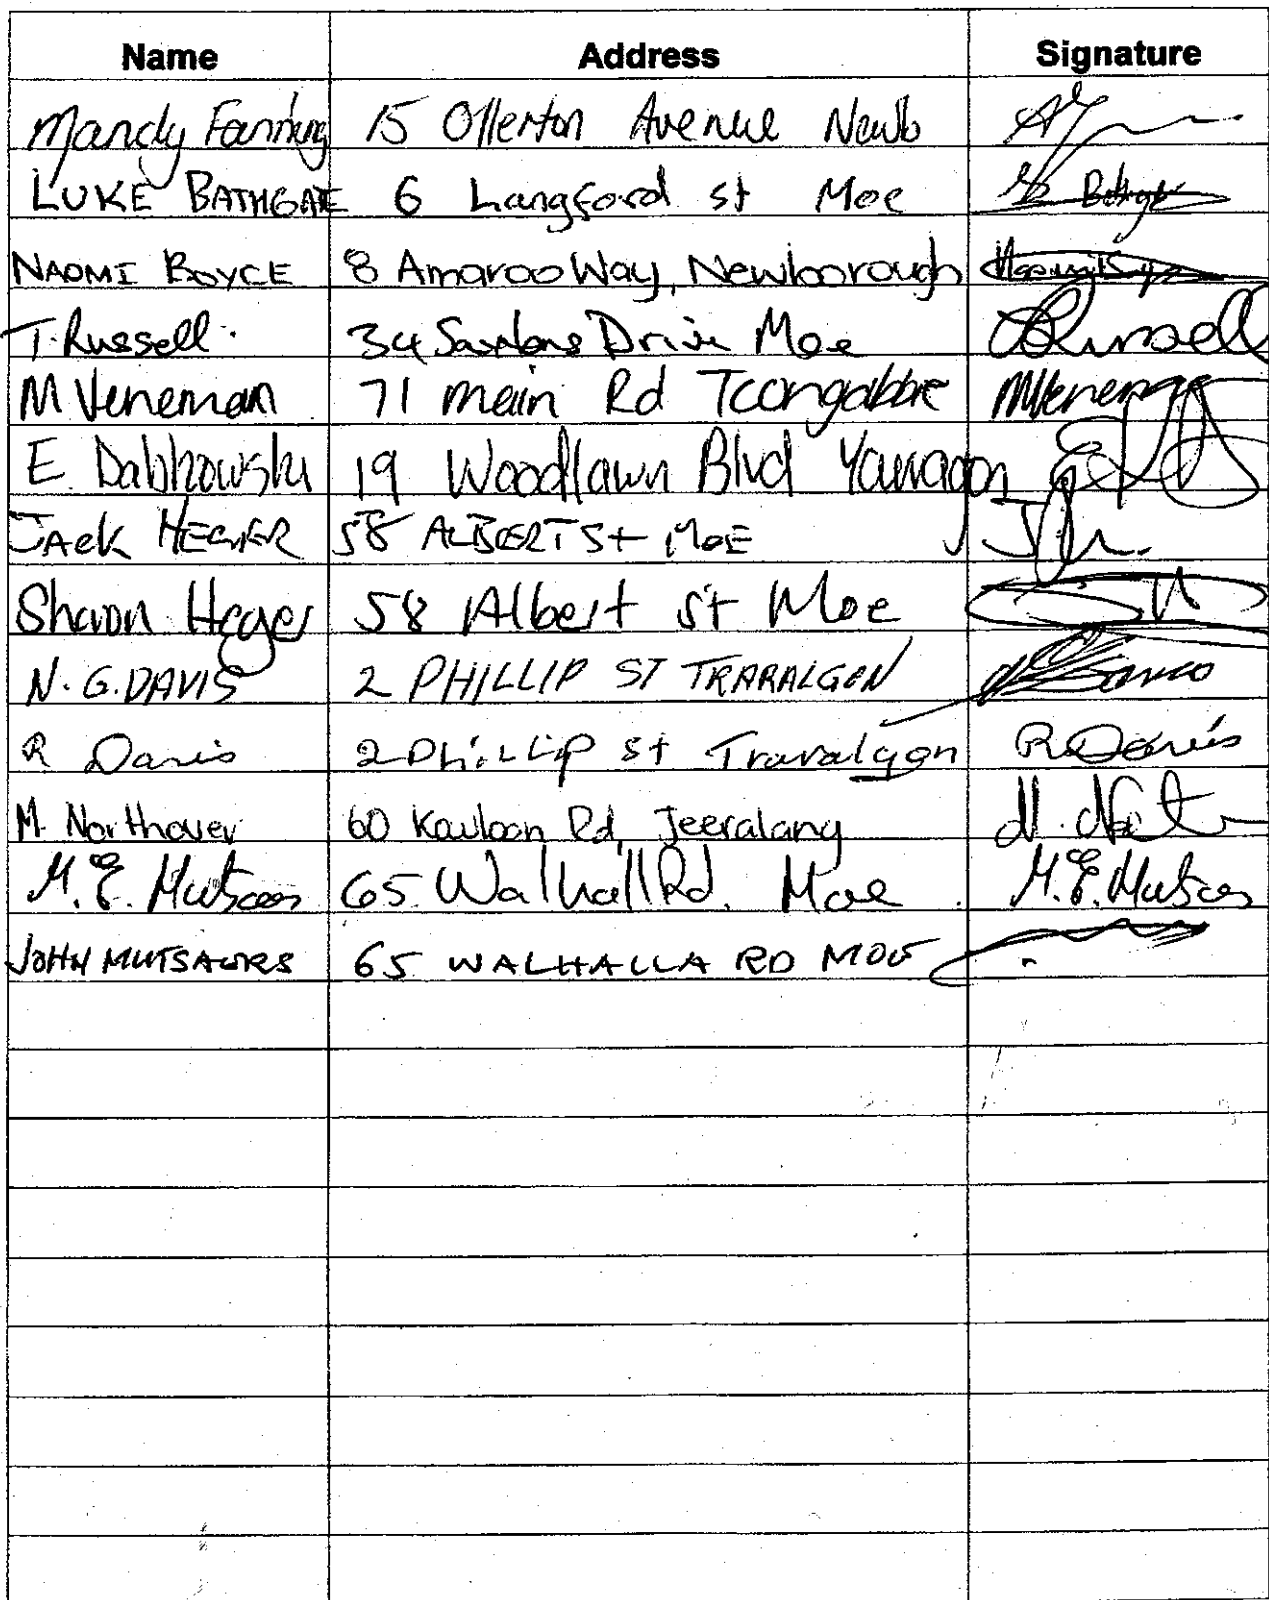 Name Address Signature
Mandy Fanning 15 Ollerton Avenue Newb
LUKE BATHGATE 6 Langford st Moe
NAOMI BOYCE 8 Amaroo Way, Newborough
T. Russell. 34 Drive Moe Russell
M Veneman 71 main Rd Toongabbie MVeneman
E. Dabkowski 19 Woodlawn Blvd Yarragon
JACK HEGER 58 ALBERT St MOE
Sharon Heger 58 Albert st Moe
N. G. DAVIS 2 PHILLIP ST TRARALGON
R Davis 2 Phillip st Traralgon R Davis
M. Northover 60 Kowloon Rd, Jeeralang
M. E. Mutsaers 65 Walhall Rd. Moe. M. E. Mutsaers
JOHN MUTSAERS 65 WALHALLA RD MOE